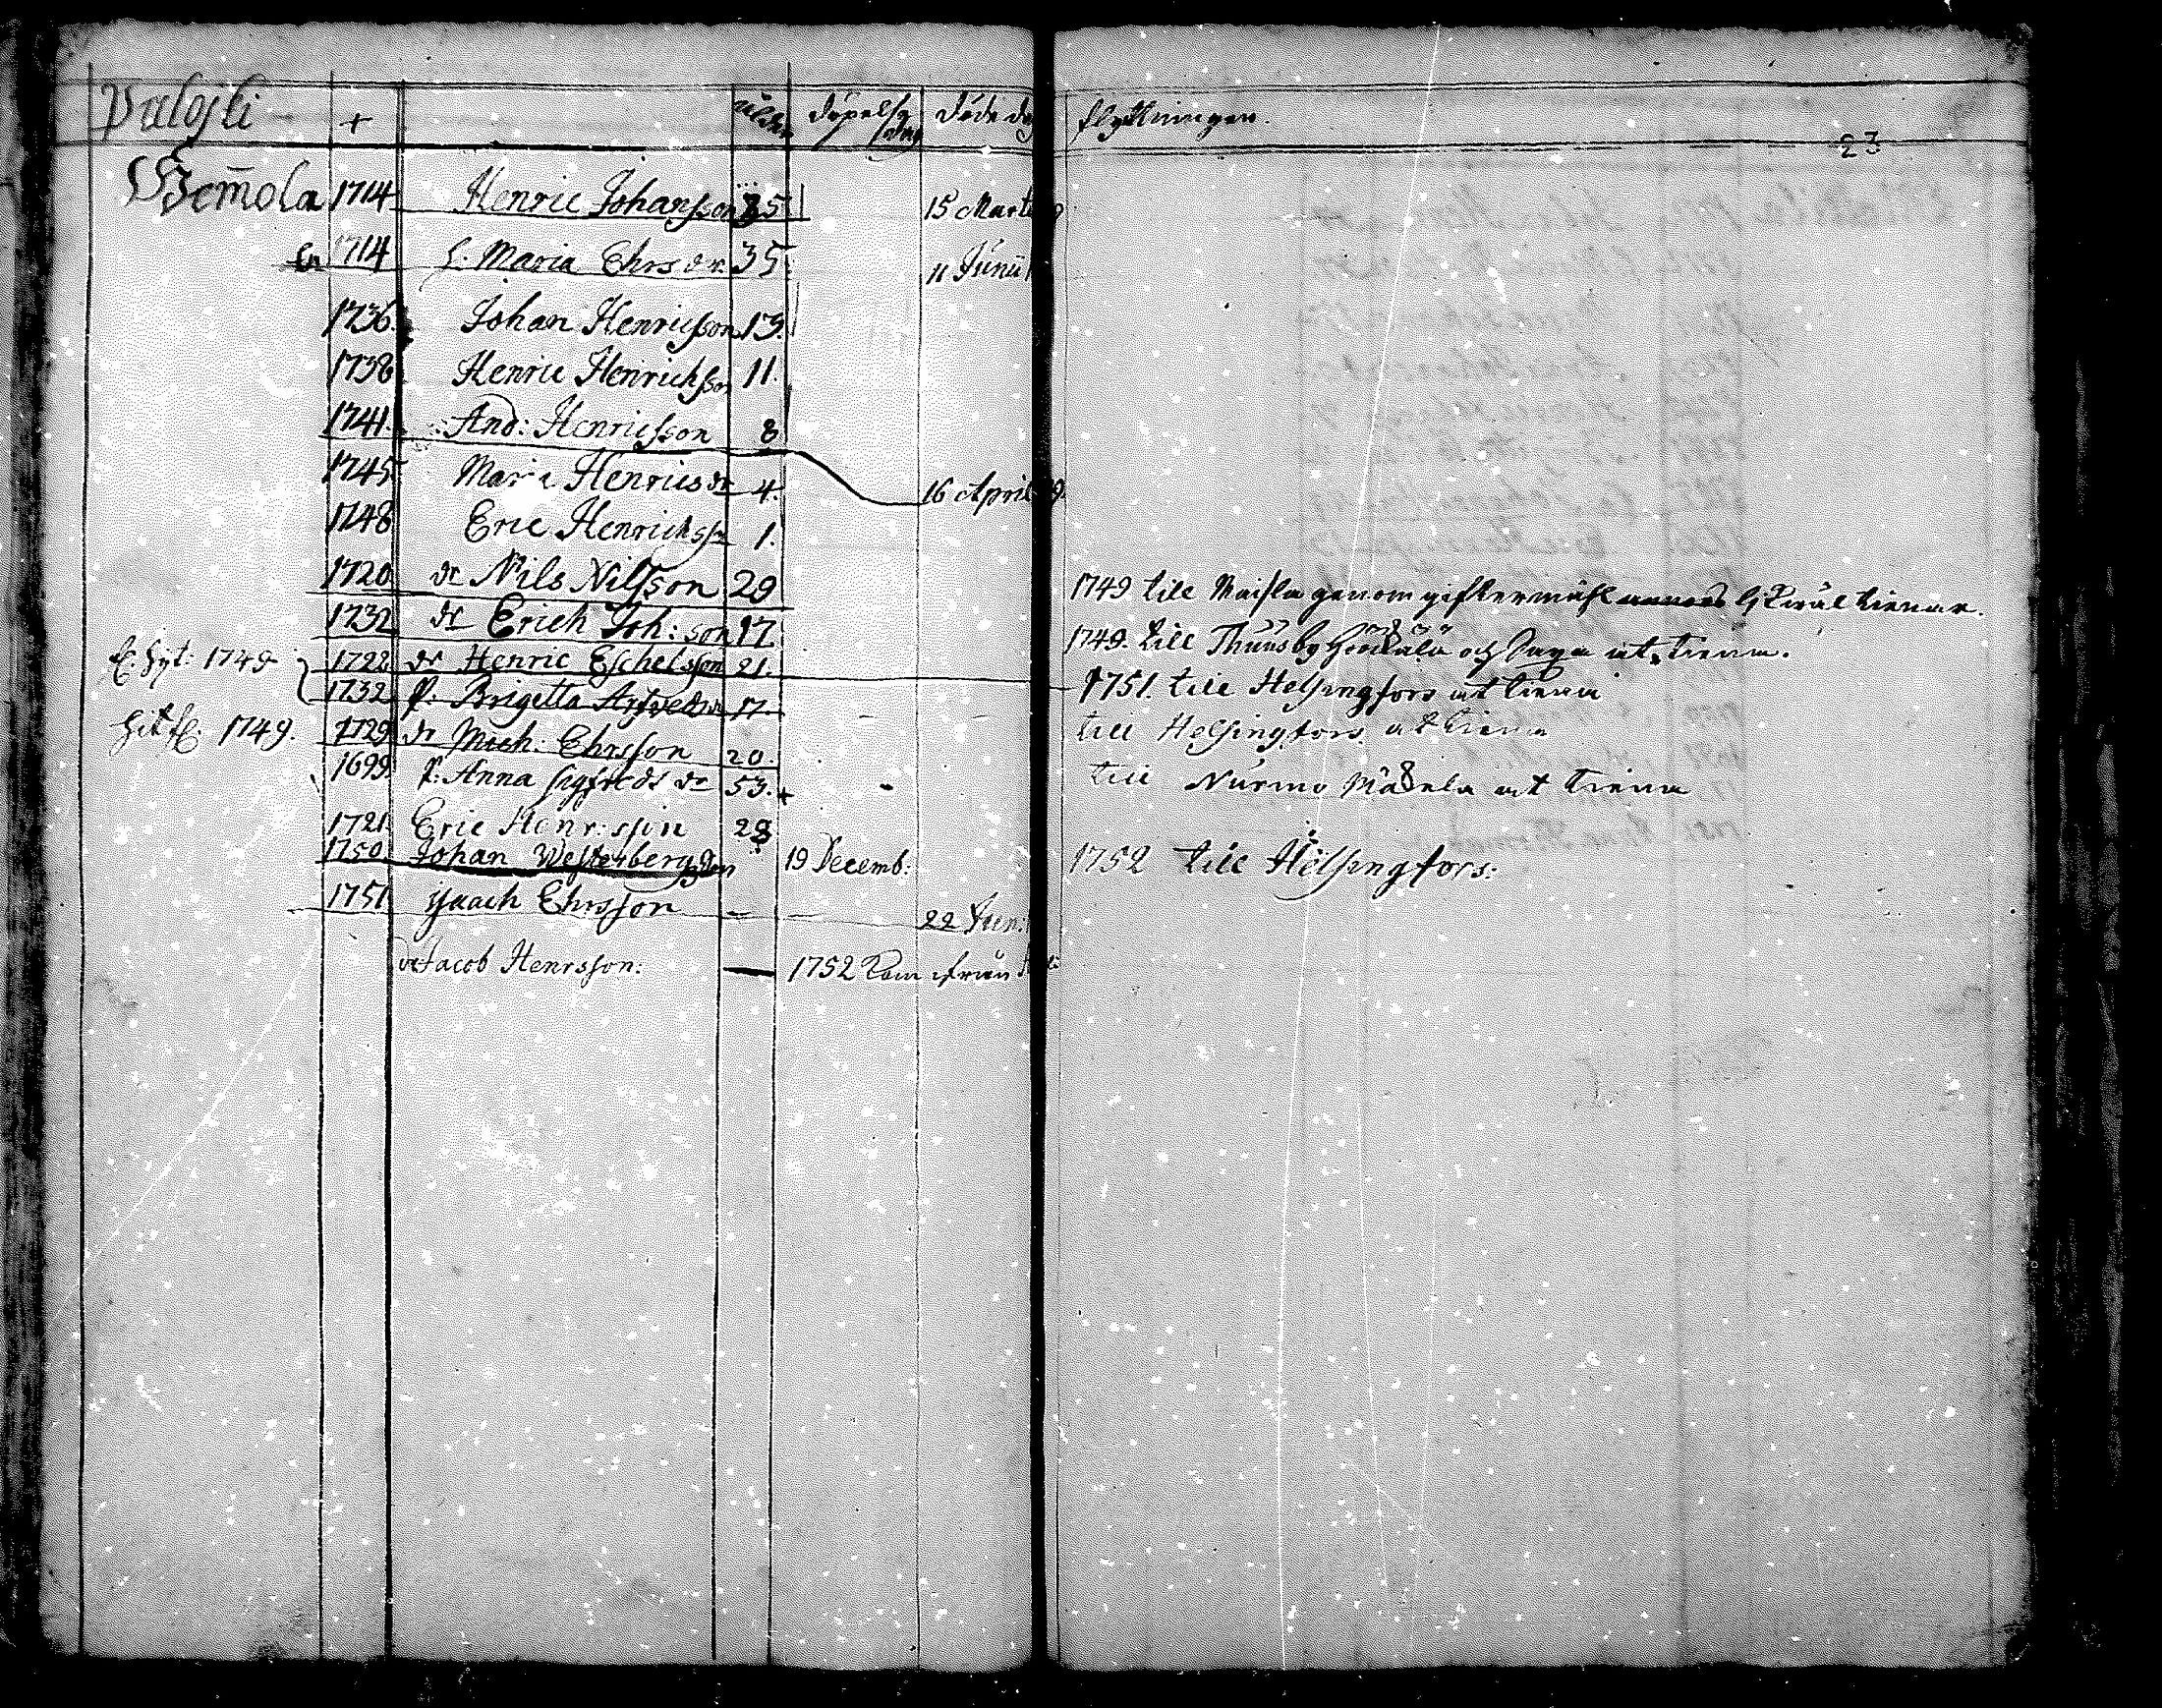 Palojki + ålder döpelse dag döde dag flyttningen. 23
Hemola 1714 Henric Johansson 35 15 Marti
1714 h. Maria Ehrsdr. 35. 11 Junii
1736. Johan Henricsson 13.
1738 Henric Henrichsson 11.
1741. And: Henricsson 8
1745 Maria Henricsdr 4. 16 April
1748 Eric Henrichsson 1.
1720 dr Nils Nilsson 29 1749 till Maisla genom giftermåhl
1732 dr Erich Joh:son 17 1749. till Thuusby och Paga at tiena.
1749 1728 dr Henric Eschelsson 21. 1751. till Helsingfors at tiena
1732 P. Brigetta 17.
hit fl. 1749. 1729 dr Mich: Ehrsson 20. till Helsingfors at tiena
1699 P. Anna Sigfreds dr 53. + till Nurmo at tiena
1721 Eric Henr:sson 28
1750 Johan Westerberg 19 Decemb: 1752 till Helsingfors:
1751 Ehrsson 22 Jun:
dr Jacob Henrsson: — 1752 kom ifrån